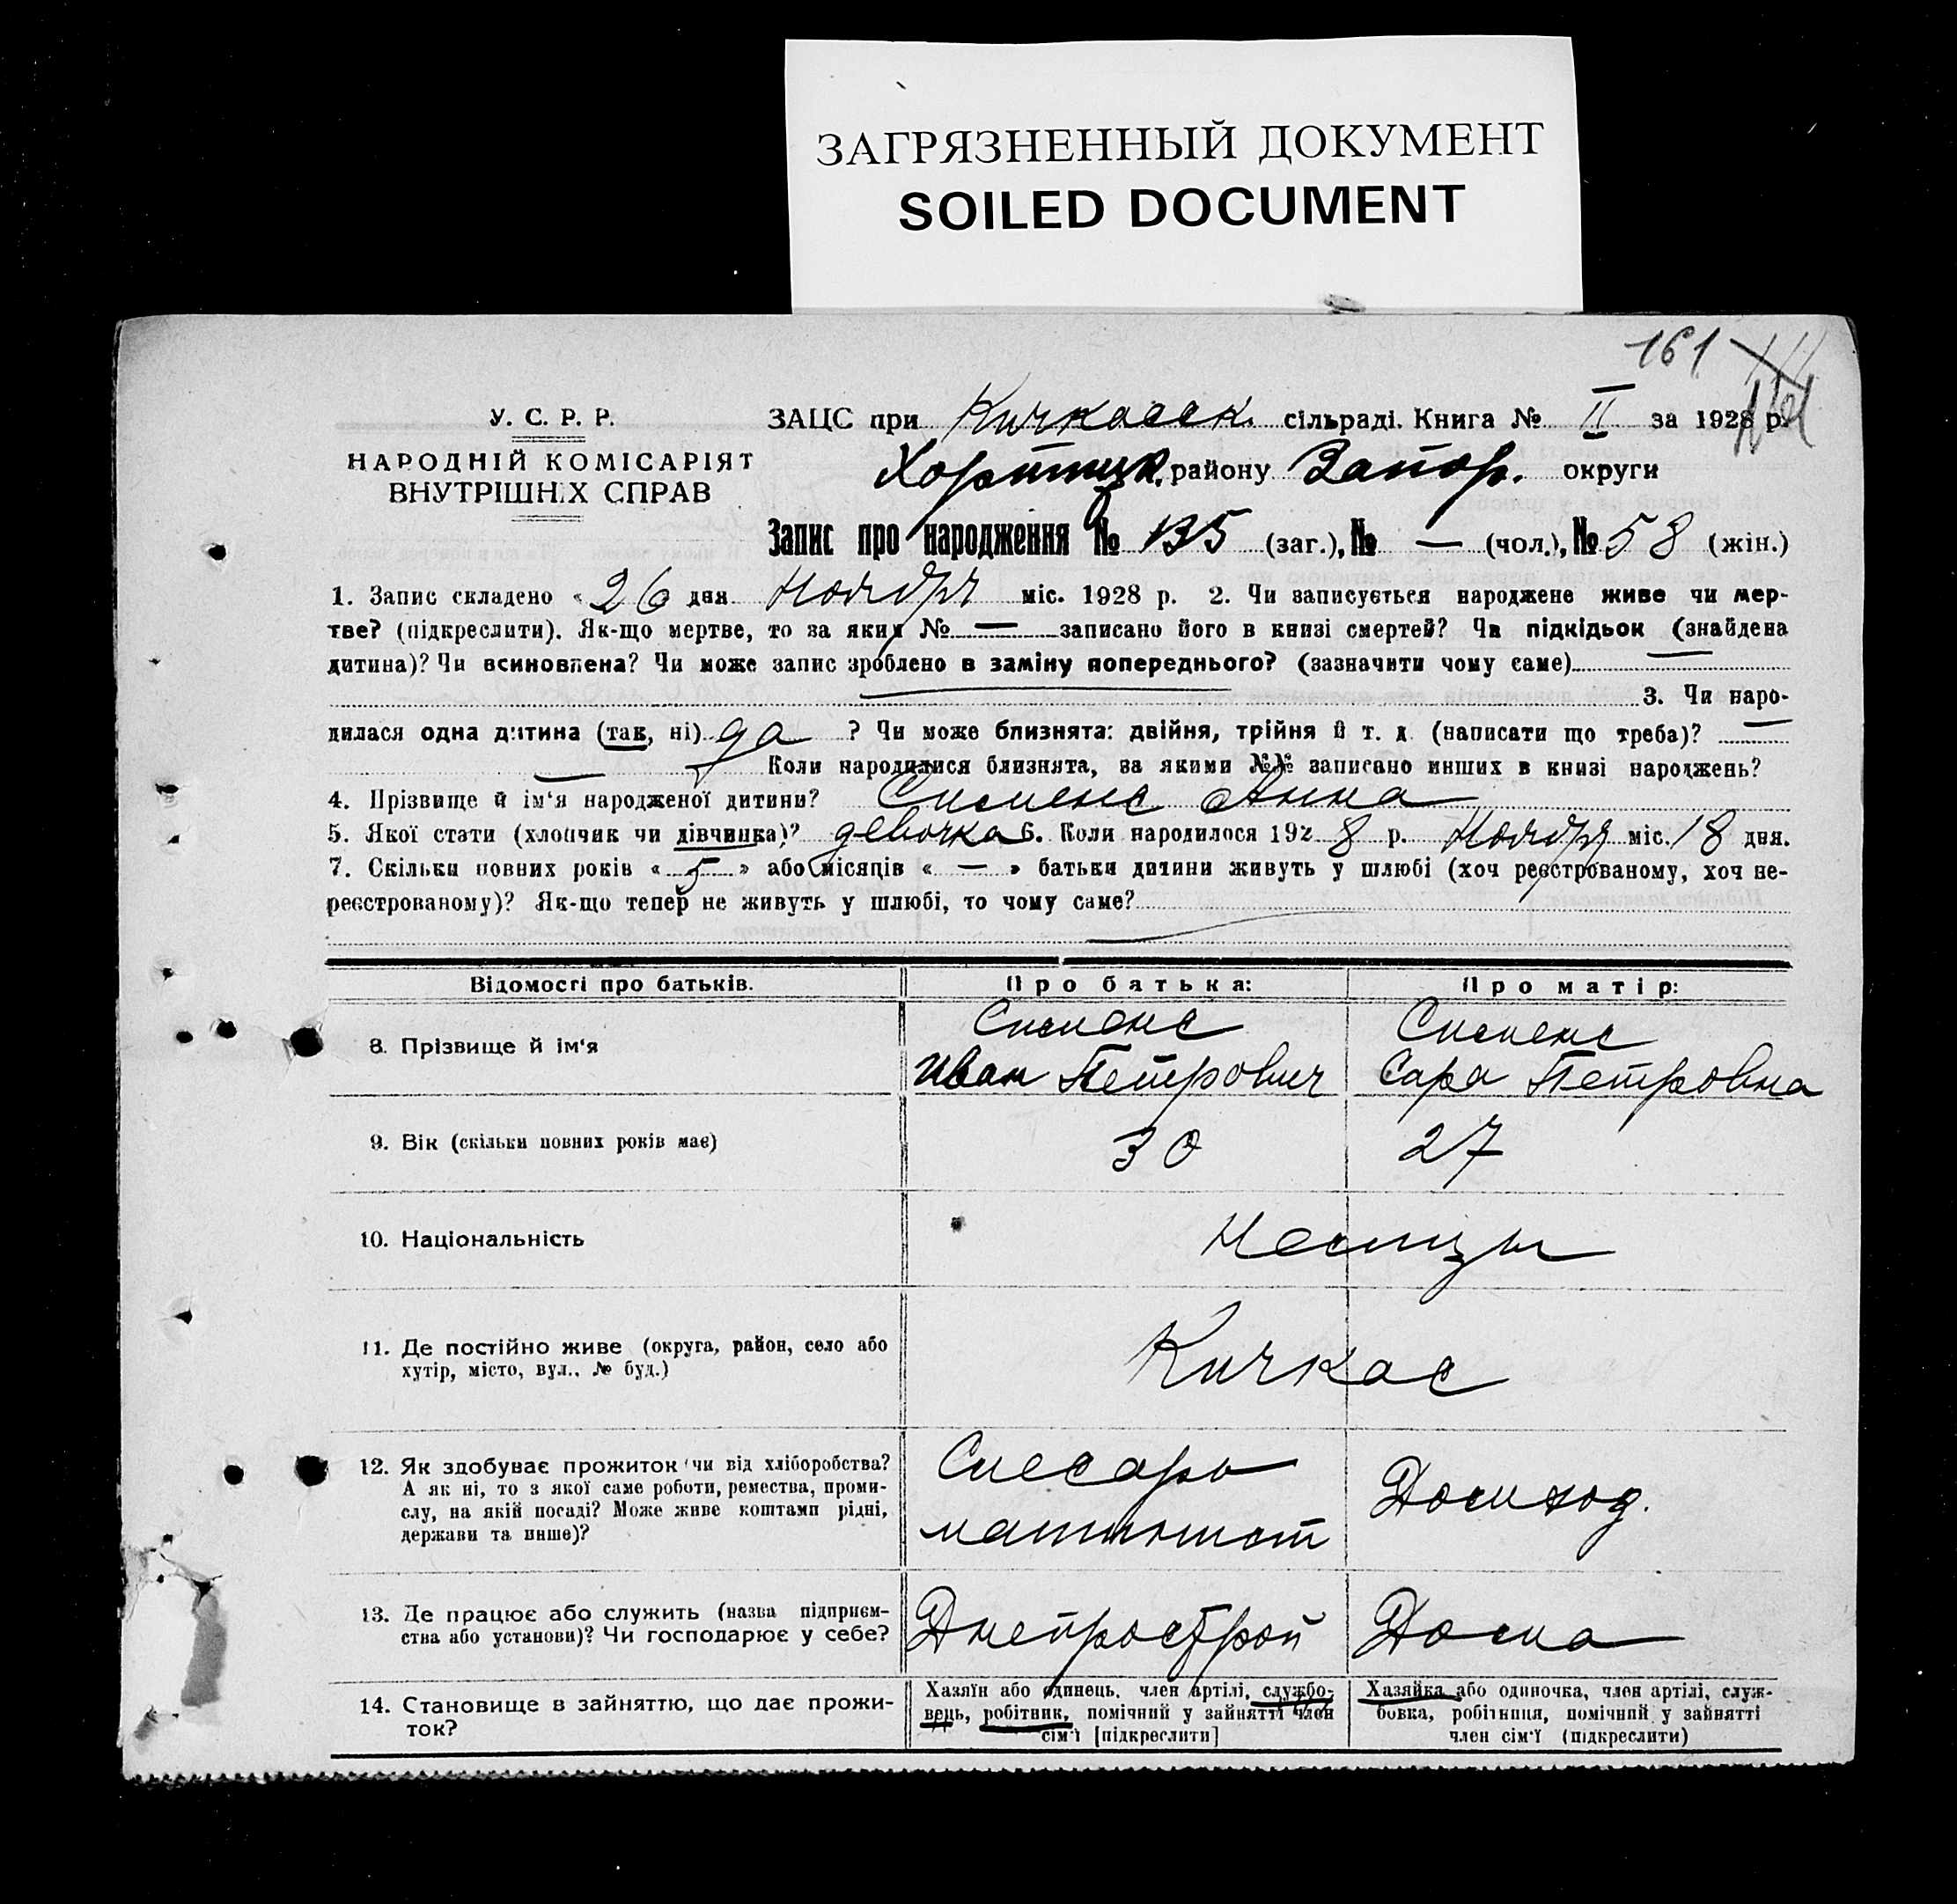 ЗАГРЯЗНЕННЫЙ ДОКУМЕНТ
SOILED DOCUMENT
161
У. С. Р. Р.
НАРОДНІЙ КОМІСАРІЯТ
ВНУТРІШНІХ СПРАВ
ЗАЦС при Кичкасск. сільраді. Книга № II за 1928 р.
Хортицк. району Запор. округи
Запис про народження № 135 (заг.), № — (чол.), № 58 (жін.)
1. Запис складено «26 дня Ноября міс. 1928 р. 2. Чи записується народжене живе чи мер-
тве? (підкреслити). Як-що мертве, то за яким № — записано його в книзі смертей? Чи підкідьок (знайдена
дитина)? Чи всиновлена? Чи може запис зроблено в заміну попереднього? (зазначити чому саме) —
3. Чи наро-
дилася одна дитина (так, ні) да ? Чи може близнята: двійня, трійня й т. д. (написати що треба)? —
— Коли народилися близнята, за якими №№ записано инших в книзі народжень?
4. Прізвище й ім'я народженої дитини? Сименс Анна
5. Якої стати (хлопчик чи дівчинка)? девочка 6. Коли народилося 1928 р. Ноября міс. 18 дня.
7. Скільки повних років «5» або місяців «—» батьки дитини живуть у шлюбі (хоч реєстрованому, хоч не-
реєстрованому)? Як-що тепер не живуть у шлюбі, то чому саме?
Відомості про батьків. Про батька: Про матір:
8. Прізвище й ім'я Сименс Иван Петрович Сименс Сара Петровна
9. Вік (скільки повних років має) 30 27
10. Національність Немцы
11. Де постійно живе (округа, район, село або
хутір, місто, вул., № буд.) Кичкас
12. Як здобуває прожиток чи від хліборобства?
А як ні, то з якої саме роботи, ремества, проми-
слу, на якій посаді? Може живе коштами рідні,
держави та инше)?
Слесарь
машинист
Домход.
13. Де працює або служить (назва підприєм-
ства або установи)? Чи господарює у себе?
Днепрострой Дома
14. Становище в зайняттю, що дає прожи-
ток?
Хазяїн або одинець, член артілі, службо-
вець, робітник, помічний у зайнятті член
сім'ї [підкреслити]
Хазяйка або одиночка, член артілі, служ-
бовка, робітниця, помічний у зайнятті
член сім'ї (підкреслити)